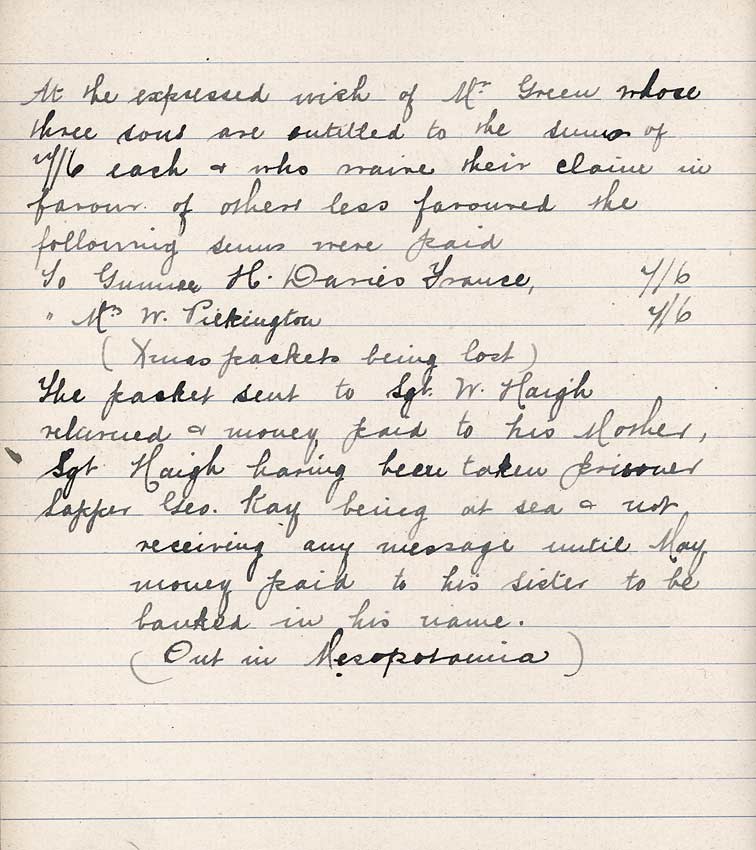 At the expressed wish of Mr Green whose
three sons are entitled to the sum of
7/6 each & who waive their claim in
favour of others less favoured the
following sums were paid
To Gunner H. Davies France, 7/6
" Mrs W. Pilkington 7/6
(Xmas packets being lost)
The packet sent to Sgt. W. Haigh
returned & money paid to his Mother,
Sgt Haigh having been taken prisoner
Sapper Geo. Kay being at sea & not
receiving any message until May
money paid to his sister to be
banked in his name.
(Out in Mesopotamia)